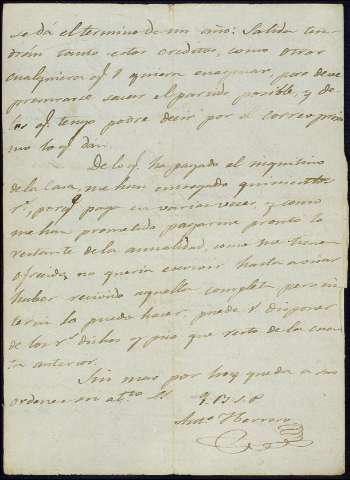 se dá el termino de un año: Salida ten
drán tanto estos creditos, como otros
cualquiera q.e V quiera enagenar, pero deve
procurarse sacar el partido posible, y de
los q.e tengo podre decir por el correo proxi
mo lo q.e dan.
De lo q.e ha pagado el inquilino
de la Casa, me han entregado quinientos
r.s, porq.e paga en varias veces, y como
me han prometido pagarme pronto lo
restante de la anualidad, como me tienen
ofrecido, no queria escrivir hasta avisar
haber recivido aquella completa pero in
terin lo puedo hacer, puede V disponer
de los r.s dichos y pico que resto de la cuen
ta anterior.
Sin mas por hoy queda a sus
ordenes su at.to S.
Q. B. S. M.
Ant.o Herrero